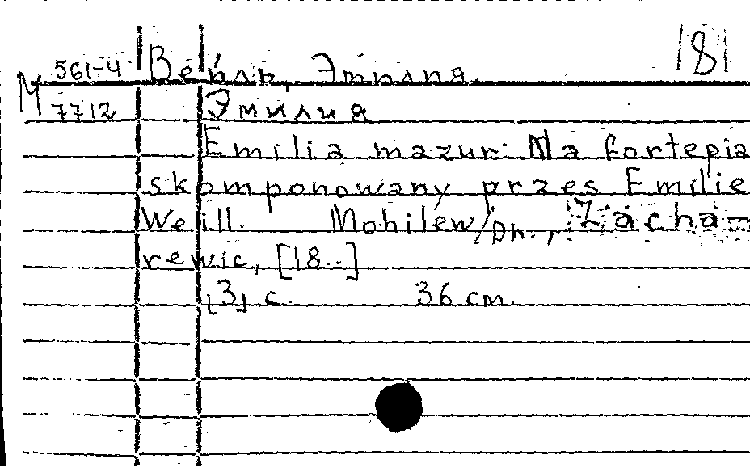 М 561-4 Вейль, Эмилия. 181
7712 Эмилия
Emilia mazur. Na fortepia
skomponowany przes Emilie
Weill. Mohilew/Dn., Zacha-
rewic, [18..]
[3] с. 36 см.